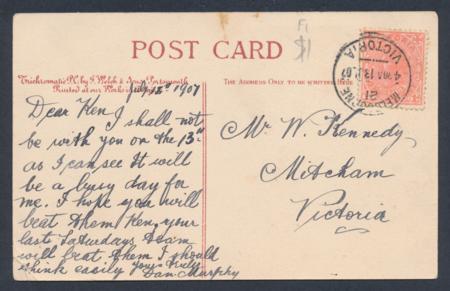 F1
$1
POST CARD
Trichromatic P.C. by J. Welch & Sons, Portsmouth
Printed at our Works in
THE ADDRESS ONLY TO BE WRITTEN HERE
MELBOURNE
21
13 07
VICTORIA
July 12th 1907
Dear Ken I shall not
be with you on the 13th
as I can see It will
be a busy day for
me. I hope you will
beat them Ken, your
last Saturdays Team
will beat them I should
think easily Yours Truly
Dan. Murphy
Mr W. Kennedy
Mitcham
Victoria